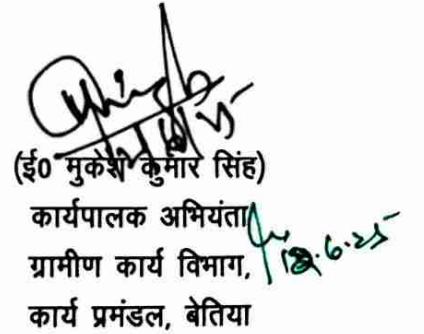 (ई0 मुकेश कुमार सिंह)
कार्यपालक अभियंता
ग्रामीण कार्य विभाग,
कार्य प्रमंडल, बेतिया
12.6.25